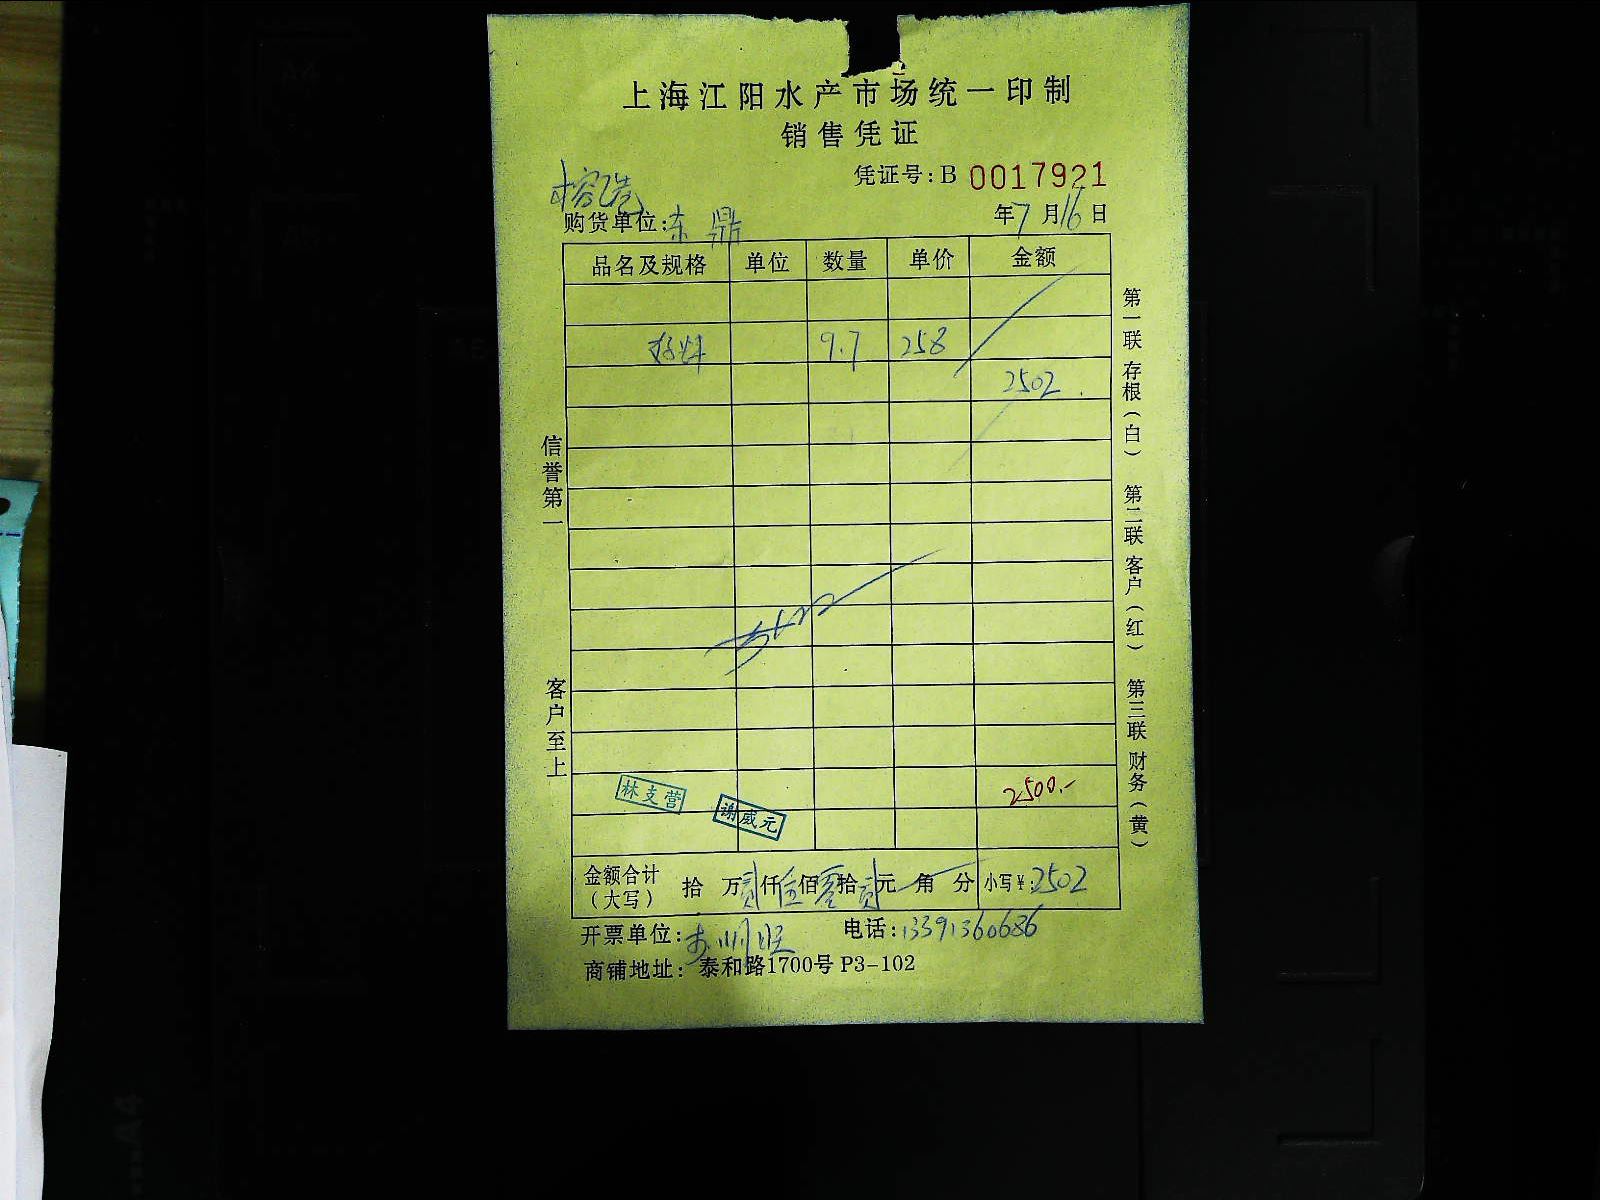 上海江阳水产市场统一印制
销售凭证
凭证号:B 0017921
购货单位:东鼎
年7月16日
品名及规格 单位 数量 单价 金额
9.7 258
2502
2500.-
林支营
谢威元
金额合计(大写) 拾 万贰仟伍佰零拾贰元 角 分 小写¥:2502
开票单位:
电话:13391360686
商铺地址:泰和路1700号 P3-102
信誉第一
客户至上
第一联 存根(白) 第二联 客户(红) 第三联 财务(黄)